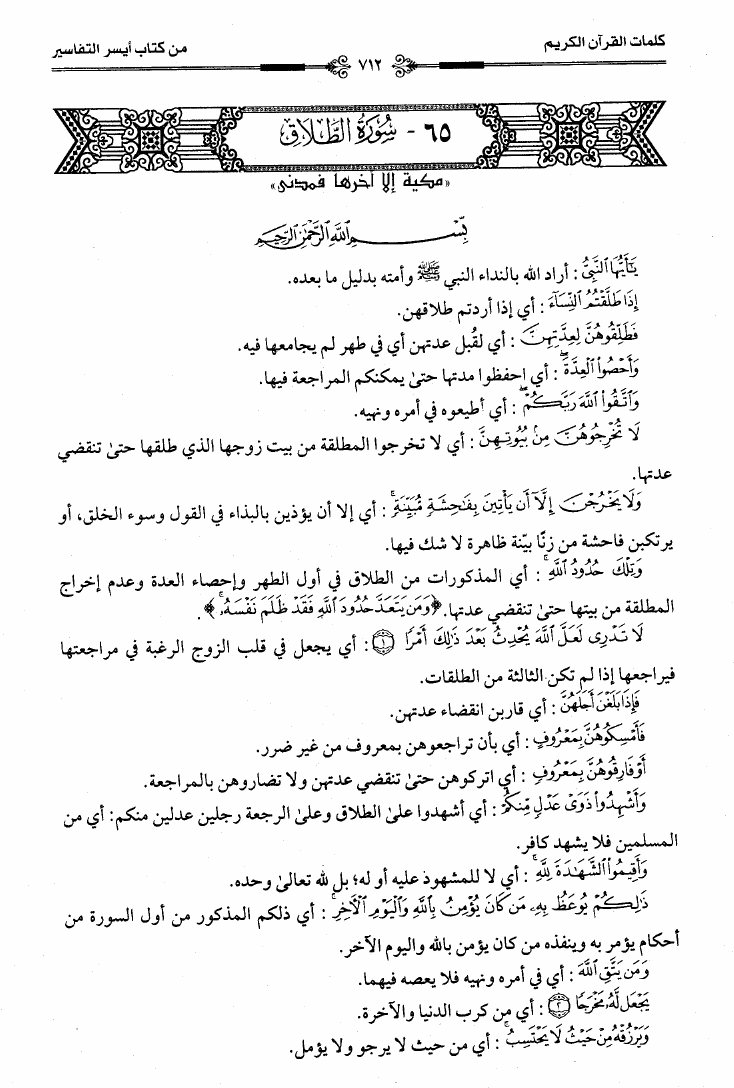 كلمات القرآن الكريم
٧١٢
من كتاب أيسر التفاسير
٦٥ - سُورَةُ الطَّلَاقِ
«مكية إلا آخرها فمدني»
بِسْمِ اللَّهِ الرَّحْمَٰنِ الرَّحِيمِ
يَٰٓأَيُّهَا ٱلنَّبِىُّ : أراد الله بالنداء النبي ﷺ وأمته بدليل ما بعده.
إِذَا طَلَّقْتُمُ ٱلنِّسَآءَ : أي إذا أردتم طلاقهن.
فَطَلِّقُوهُنَّ لِعِدَّتِهِنَّ : أي لقُبل عدتهن أي في طهر لم يجامعها فيه.
وَأَحْصُوا۟ ٱلْعِدَّةَ ۖ : أي احفظوا مدتها حتىٰ يمكنكم المراجعة فيها.
وَٱتَّقُوا۟ ٱللَّهَ رَبَّكُمْ ۖ : أي أطيعوه في أمره ونهيه.
لَا تُخْرِجُوهُنَّ مِنۢ بُيُوتِهِنَّ : أي لا تخرجوا المطلقة من بيت زوجها الذي طلقها حتىٰ تنقضي
عدتها.
وَلَا يَخْرُجْنَ إِلَّآ أَن يَأْتِينَ بِفَٰحِشَةٍ مُّبَيِّنَةٍ ۚ : أي إلا أن يؤذين بالبذاء في القول وسوء الخلق، أو
يرتكبن فاحشة من زنًا بيّنة ظاهرة لا شك فيها.
وَتِلْكَ حُدُودُ ٱللَّهِ ۚ : أي المذكورات من الطلاق في أول الطهر وإحصاء العدة وعدم إخراج
المطلقة من بيتها حتىٰ تنقضي عدتها. ﴿وَمَن يَتَعَدَّ حُدُودَ ٱللَّهِ فَقَدْ ظَلَمَ نَفْسَهُۥ ۚ﴾.
لَا تَدْرِى لَعَلَّ ٱللَّهَ يُحْدِثُ بَعْدَ ذَٰلِكَ أَمْرًا ۝١ : أي يجعل في قلب الزوج الرغبة في مراجعتها
فيراجعها إذا لم تكن الثالثة من الطلقات.
فَإِذَا بَلَغْنَ أَجَلَهُنَّ : أي قاربن انقضاء عدتهن.
فَأَمْسِكُوهُنَّ بِمَعْرُوفٍ : أي بأن تراجعوهن بمعروف من غير ضرر.
أَوْ فَارِقُوهُنَّ بِمَعْرُوفٍ : أي اتركوهن حتىٰ تنقضي عدتهن ولا تضاروهن بالمراجعة.
وَأَشْهِدُوا۟ ذَوَىْ عَدْلٍ مِّنكُمْ : أي أشهدوا علىٰ الطلاق وعلىٰ الرجعة رجلين عدلين منكم: أي من
المسلمين فلا يشهد كافر.
وَأَقِيمُوا۟ ٱلشَّهَٰدَةَ لِلَّهِ ۚ : أي لا للمشهود عليه أو له؛ بل لله تعالىٰ وحده.
ذَٰلِكُمْ يُوعَظُ بِهِۦ مَن كَانَ يُؤْمِنُ بِٱللَّهِ وَٱلْيَوْمِ ٱلْءَاخِرِ ۚ : أي ذلكم المذكور من أول السورة من
أحكام يؤمر به وينفذه من كان يؤمن بالله واليوم الآخر.
وَمَن يَتَّقِ ٱللَّهَ : أي في أمره ونهيه فلا يعصه فيهما.
يَجْعَل لَّهُۥ مَخْرَجًا ۝٢ : أي من كرب الدنيا والآخرة.
وَيَرْزُقْهُ مِنْ حَيْثُ لَا يَحْتَسِبُ ۚ : أي من حيث لا يرجو ولا يؤمل.